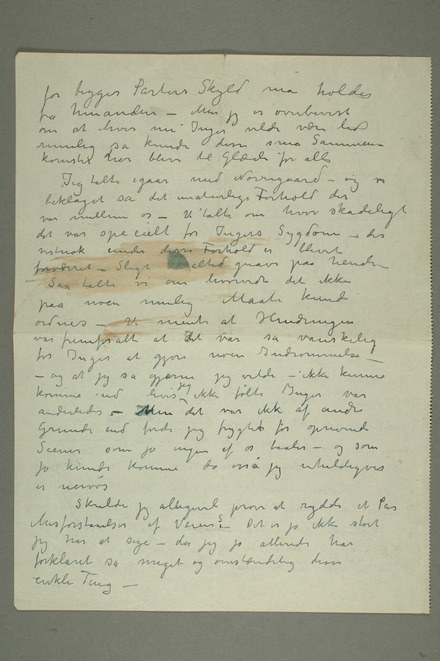 for begges Parters Skyld maa holdes
fra hinanden – Men jeg er overbevist
om at hvis nu Inger vilde være lidt
rimelig saa kunde disse smaa Sammen-
komster her blive til Glæde for alle
Jeg talte igaar med Nørregaard – og vi
beklaget saa det unaturlige Forhold der
var mellem os – Vi talte om hvor skadeligt
det var specielt for Ingers Sygdom – der
under disse Forhold er blevet
forværret – Sligt altid gnave paa hende
Saa talte vi om hvorvidt det ikke
paa noen mulig Maate kunde
ordnes – Vi mente at Hindringen
var fremforalt at det var saa vanskelig
for Inger at gjøre noen Indrømmelse –
– og at jeg saa gjerne jeg vilde – ikke kunne
komme ud hvis jeg ikke følte Inger var
anderledes – Men det var ikke af andre
Grunde end fordi jeg frygted for oprivende
Scener som jo ingen af os taaler – og som
jo kunde komme da også jeg uheldigvis
er nervøs
Skulde jeg alligevel prøve at rydde et Par
Misforstaaelser af Veien? Det er jo ikke stort
jeg har at sige – da jeg jo allerede har
forklaret saa meget og omstændelig disse
enkle Ting –